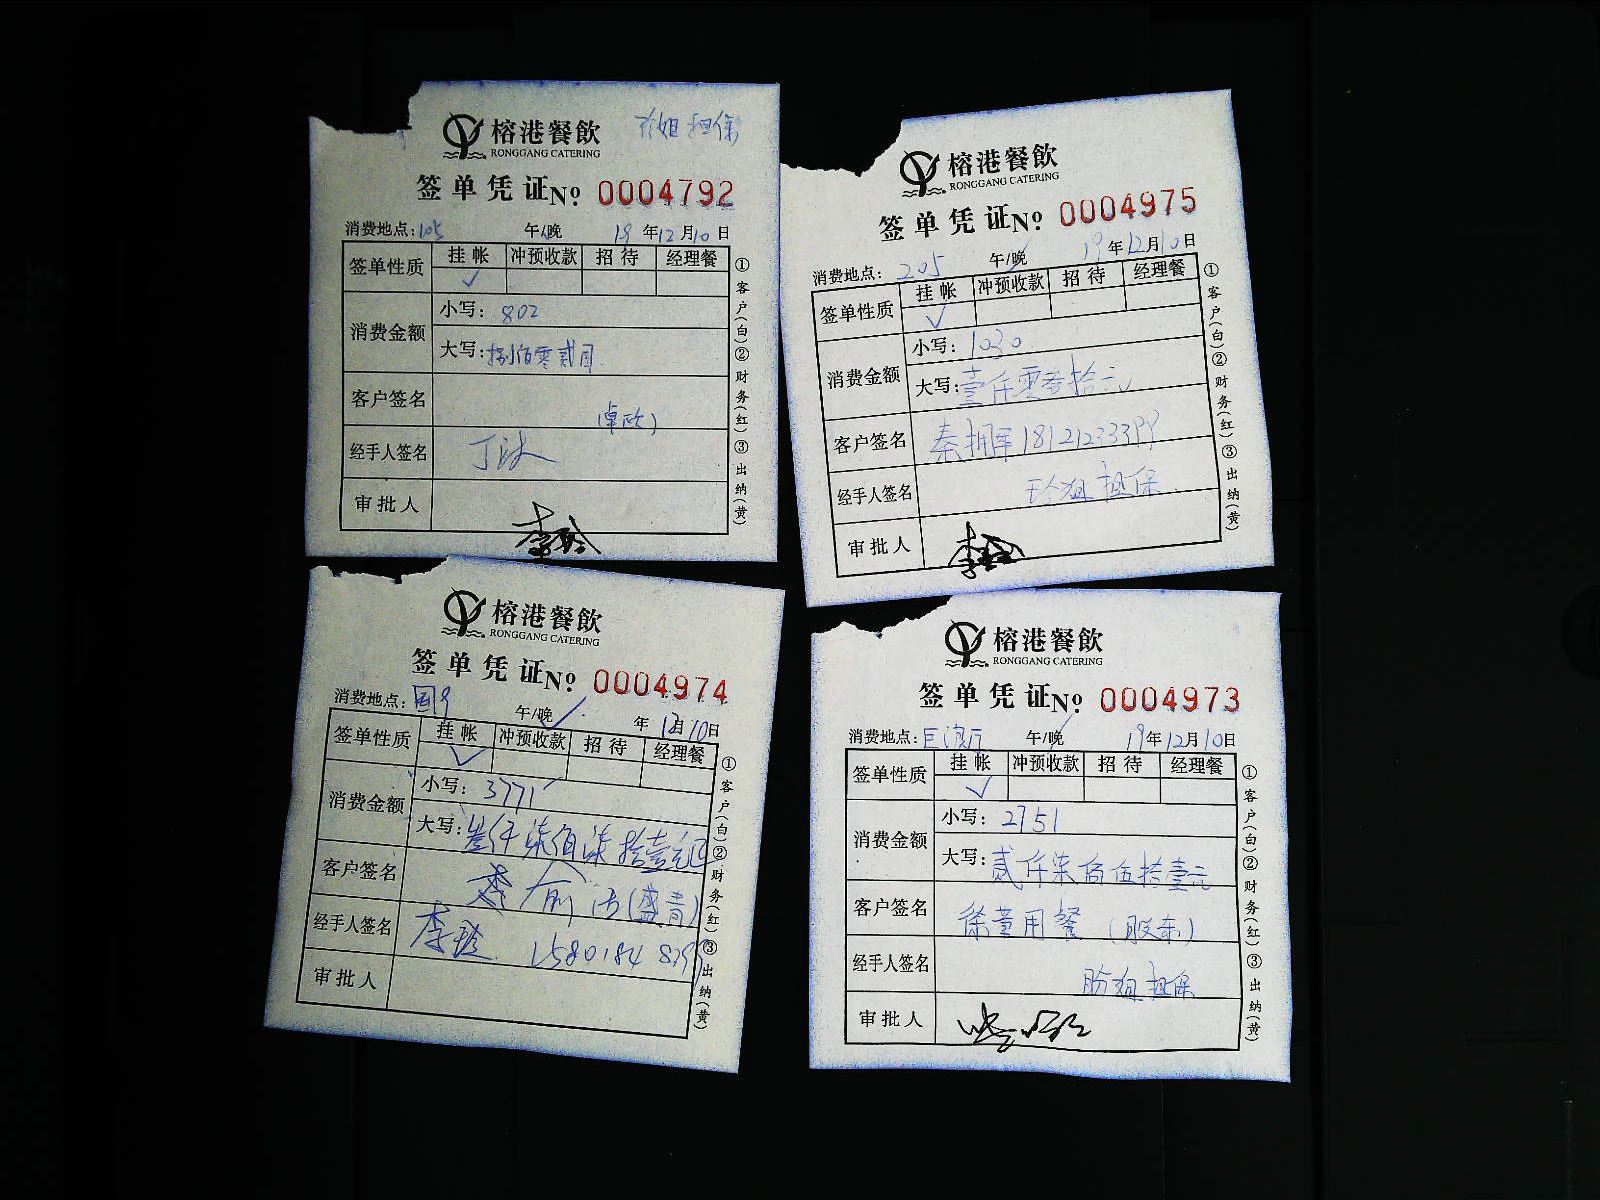 榕港餐飲
RONGGANG CATERING
担保
签单凭证№ 0004792
消费地点:105 午/晚 19年12月10日
签单性质 挂帐 冲预收款 招待 经理餐
✓
消费金额 小写: 802
大写: 捌佰零贰元
客户签名
经手人签名
审批人 李
①客户(白)②财务(红)③出纳(黄)
榕港餐飲
RONGGANG CATERING
签单凭证№ 0004975
消费地点: 205 午/晚 19年12月10日
签单性质 挂帐 冲预收款 招待 经理餐
✓
消费金额 小写: 1030
大写: 壹仟零叁拾元
客户签名 秦 181212333
经手人签名 担保
审批人 李
①客户(白)②财务(红)③出纳(黄)
榕港餐飲
RONGGANG CATERING
签单凭证№ 0004974
消费地点: 午/晚✓ 年12月10日
签单性质 挂帐 冲预收款 招待 经理餐
✓
消费金额 小写: 3771
大写: 叁仟柒佰柒拾壹元正
客户签名
经手人签名 李
审批人
①客户(白)②财务(红)③出纳(黄)
榕港餐飲
RONGGANG CATERING
签单凭证№ 0004973
消费地点: 午/晚 19年12月10日
签单性质 挂帐 冲预收款 招待 经理餐
✓
消费金额 小写: 2751
大写: 贰仟柒佰伍拾壹元
客户签名 徐董用餐(股东)
经手人签名 担保
审批人
①客户(白)②财务(红)③出纳(黄)